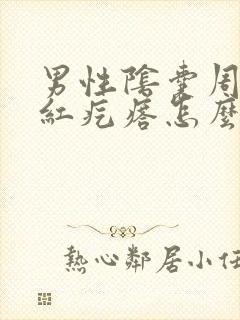 男性陰囊周
紅疙瘩怎麼
熱心鄰居小任